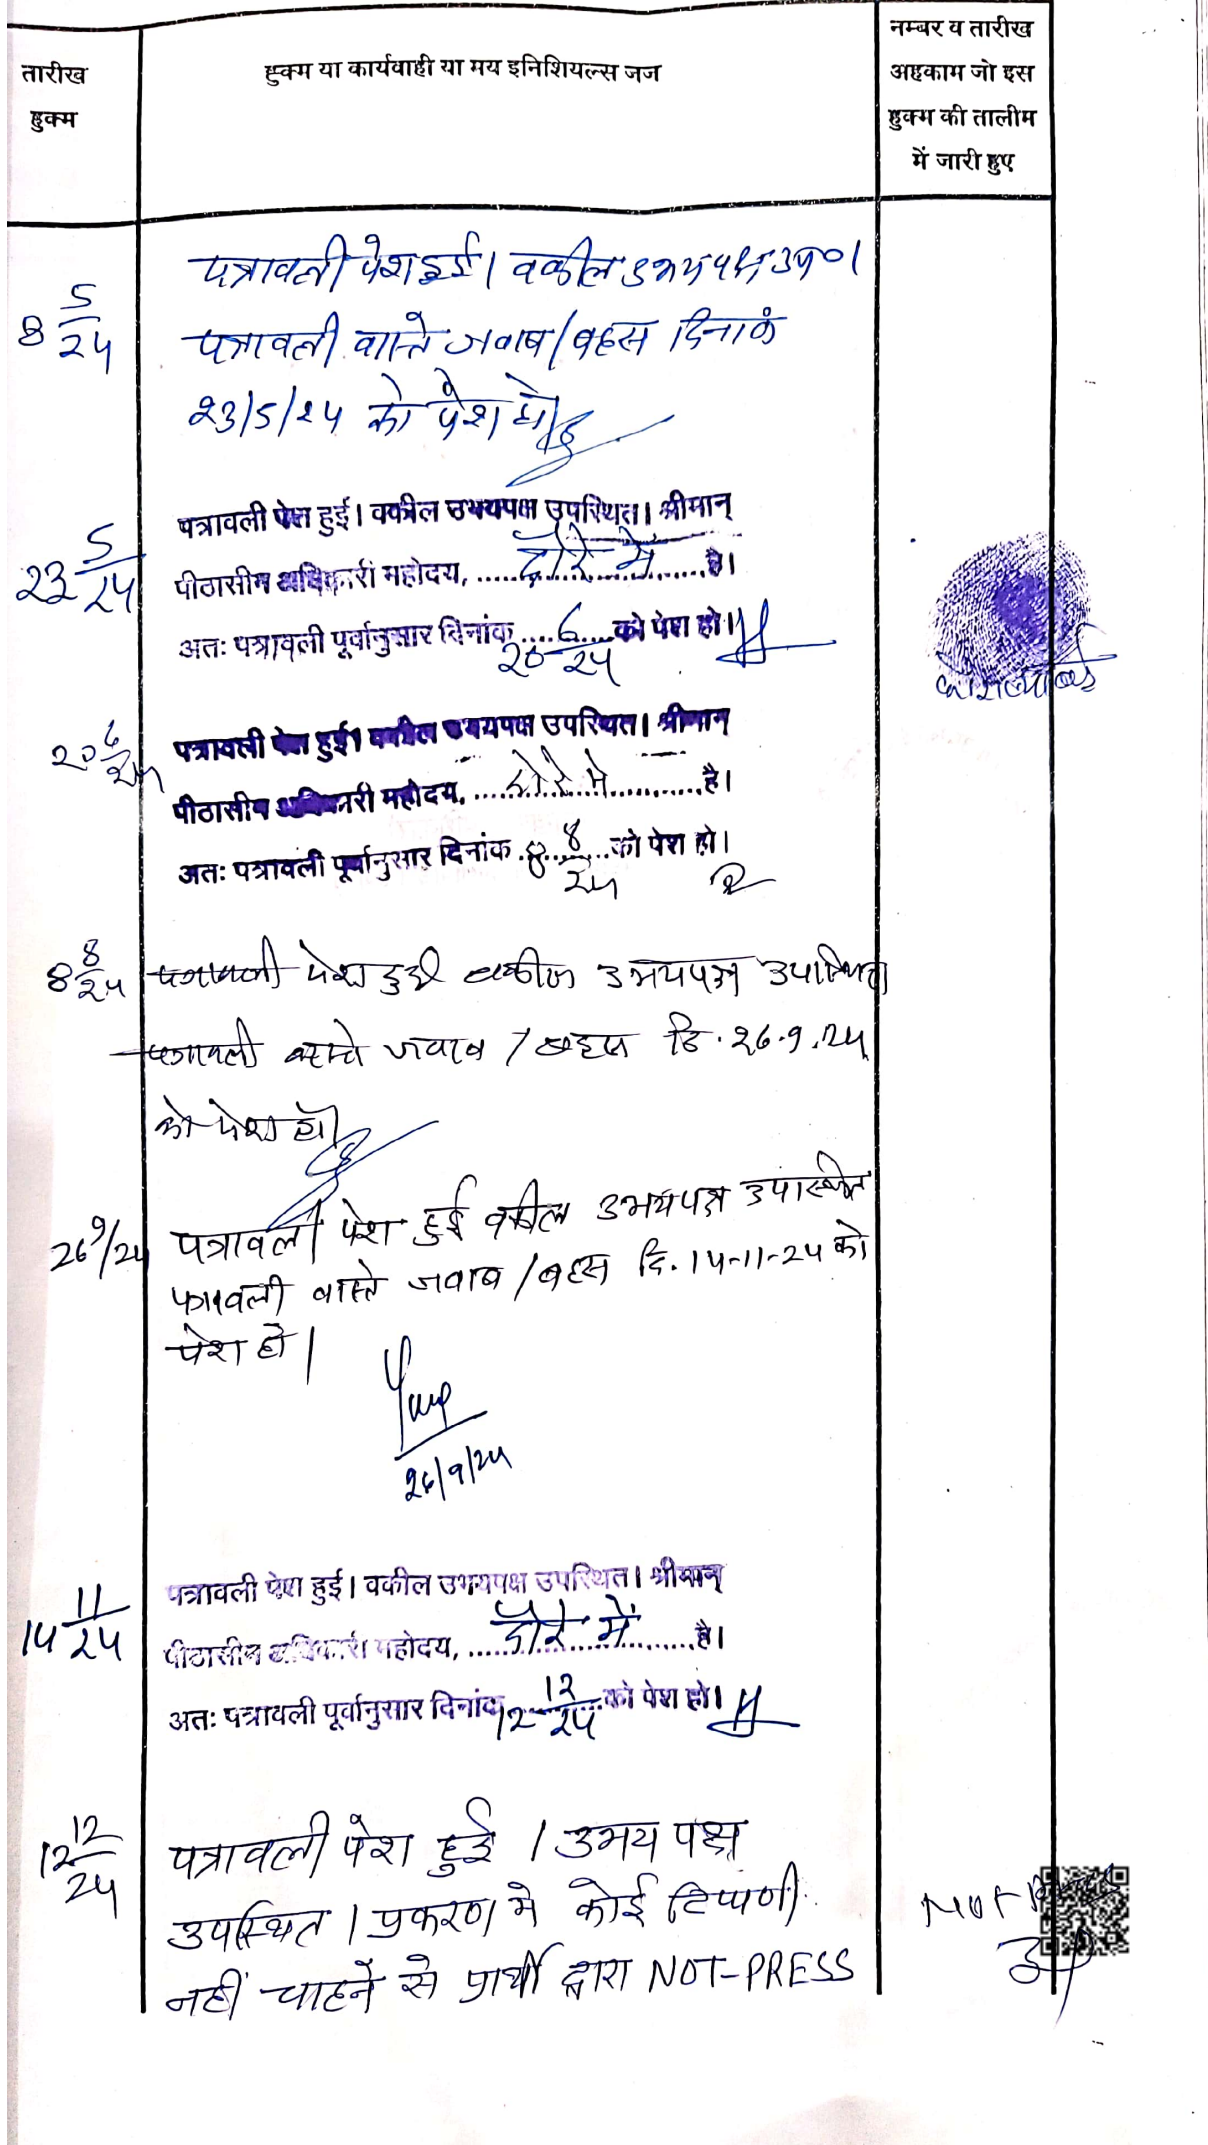 तारीख
हुक्म
हुक्म या कार्यवाही या मय इनिशियल्स जज
नम्बर व तारीख
अहकाम जो इस
हुक्म की तालीम
में जारी हुए
8 5/24
पत्रावली पेश हुई। वकील उभयपक्ष उप०।
पत्रावली वास्ते जवाब/बहस दिनाकं
23/5/24 को पेश हो।
23 5/24
पत्रावली पेश हुई। वकील उभयपक्ष उपस्थित। श्रीमान्
पीठासीन अधिकारी महोदय, ......दौरे में......है।
अतः पत्रावली पूर्वानुसार दिनांक 20 6/24 को पेश हो।
20 6/24
पत्रावली पेश हुई। वकील उभयपक्ष उपस्थित। श्रीमान्
पीठासीन अधिकारी महोदय, ......दोरे मे......है।
अतः पत्रावली पूर्वानुसार दिनांक 8 8/24 को पेश हो।
8 8/24
पत्रावली पेश हुई वकील उभयपक्ष उपस्थित
पत्रावली वास्ते जवाब / बहस दि. 26.9.24
को पेश हो
26 9/24
पत्रावली पेश हुई वकील उभयपक्ष उपस्थित
पत्रावली वास्ते जवाब / बहस दि. 14-11-24 को
पेश हो।
26/9/24
14 11/24
पत्रावली पेश हुई। वकील उभयपक्ष उपस्थित। श्रीमान्
पीठासीन अधिकारी महोदय, ......दौरे में......है।
अतः पत्रावली पूर्वानुसार दिनांक 12 12/24 को पेश हो।
12 12/24
पत्रावली पेश हुई । उभय पक्ष
उपस्थित । प्रकरण मे कोई टिप्पणी
नहीं चाहने से प्रार्थी द्वारा NOT-PRESS
Not